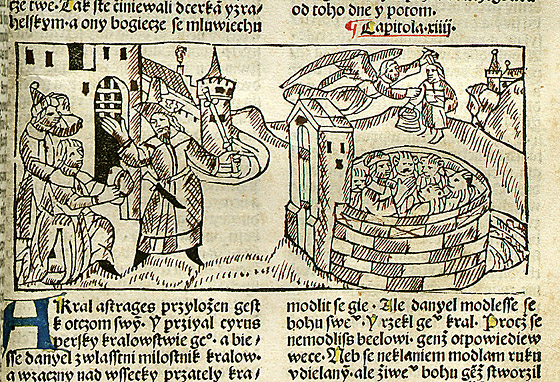 cze twe · Tak ste činiewali dcerká yzra
helskym · a ony bogiecze se mluwiechu
od toho dne y potom.
¶ Capitola · xiiij ·
A Kral astrages przyložen gest
k otczom swý · Y prziyal cyrus
persky kralowstwie geº · a bie ⸗
sse danyel z wlasstni milostnik kralow.
a wzaczny nad wssecky przately kra ⸗
modlit se gie · Ale danyel modlesse se
bohu sweº · Y rzekl geº kral · Procž se
nemodliss beelowi · genž otpowiediew
wece · Neb se neklaniem modlam ruku
vdielaný · ale žiweº bohu gëž stworzil